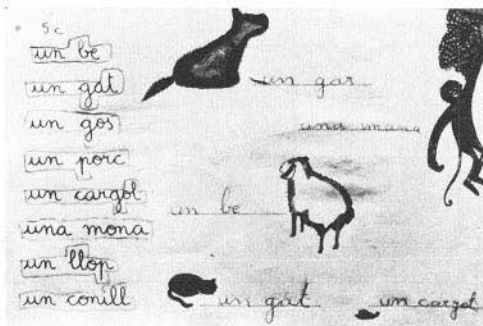 5c
un be
un gat
un gos
un porc
un cargol
una mona
un llop
un conill
un gar
una mana
un be
un gat
un cargol